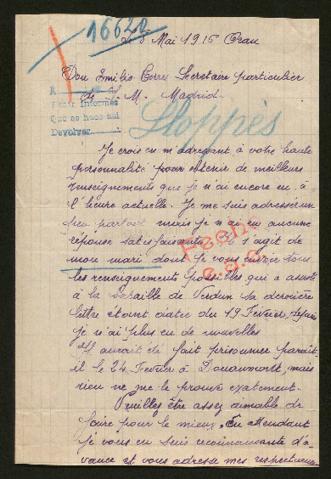 16622
Mai 1916 Oran
Don Emilio Torres Secretaire particulier
de S. M. Madrid.
Pedir informes
Que se hace asi
Devolver
Je crois en m'adressant à votre haute
personnalité pour obtenir de meilleurs
renseignements que je n'ai encore eu à
l'heure actuelle. Je me suis adressée un
peu partout mais je n'ai eu aucune
réponse satisfaisante. Il s'agit de
mon mari dont je vous envoie tous
les renseignements possibles qui a assisté
à la bataille de Verdun sa dernière
lettre étant datée du 19 Février, depuis
je n'ai plus eu de nouvelles
Il aurait été fait prisonnier paraît-
il le 24 Fevrier à Douaumont, mais
rien ne me le prouve exatement.
Veuillez être assez aimable de
faire pour le mieux, En attendant
je vous en suis reconnaissante d'a-
vance et vous adresse mes respectueux